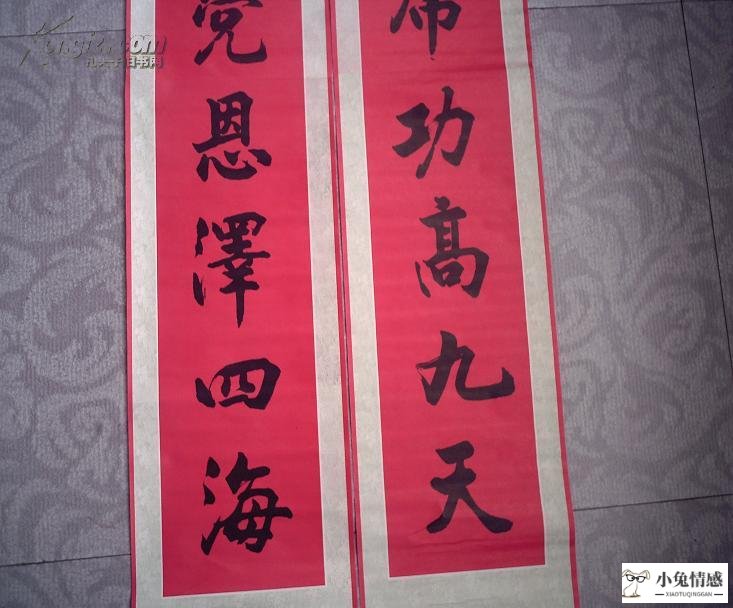 功高九天
党恩澤四海
Kongfz.com
孔夫子旧书网
小兔情感
XIAOTUQINGGAN